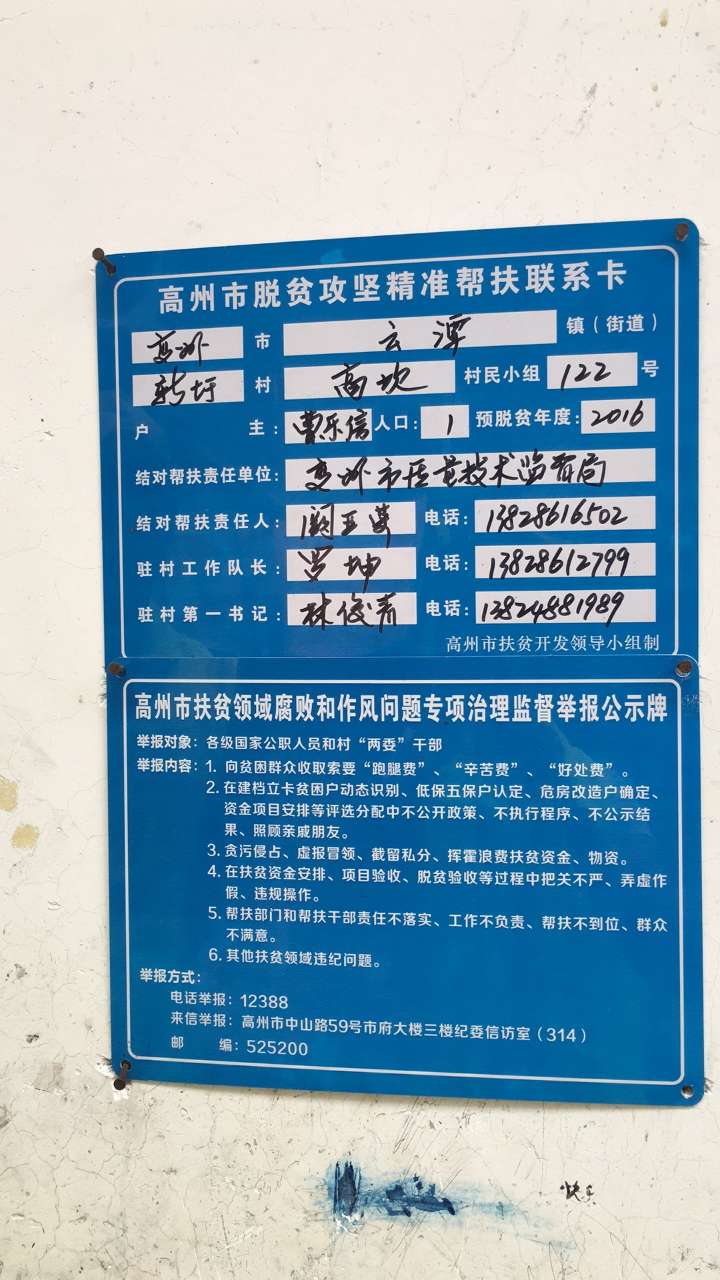 高州市脱贫攻坚精准帮扶联系卡
高州 市 云潭 镇（街道）
新圩 村 高坎 村民小组 122 号
户主：曹乐信 人口：1 预脱贫年度：2016
结对帮扶责任单位：高州市质量技术监督局
结对帮扶责任人： 电话：13828616502
驻村工作队长：罗坤 电话：13828612799
驻村第一书记：林俊青 电话：13824881989
高州市扶贫开发领导小组制
高州市扶贫领域腐败和作风问题专项治理监督举报公示牌
举报对象：各级国家公职人员和村“两委”干部
举报内容：1. 向贫困群众收取索要“跑腿费”、“辛苦费”、“好处费”。
2. 在建档立卡贫困户动态识别、低保五保户认定、危房改造户确定、
资金项目安排等评选分配中不公开政策、不执行程序、不公示结
果、照顾亲戚朋友。
3. 贪污侵占、虚报冒领、截留私分、挥霍浪费扶贫资金、物资。
4. 在扶贫资金安排、项目验收、脱贫验收等过程中把关不严、弄虚作
假、违规操作。
5. 帮扶部门和帮扶干部责任不落实、工作不负责、帮扶不到位、群众
不满意。
6. 其他扶贫领域违纪问题。
举报方式：
电话举报：12388
来信举报：高州市中山路59号市府大楼三楼纪委信访室（314）
邮编：525200